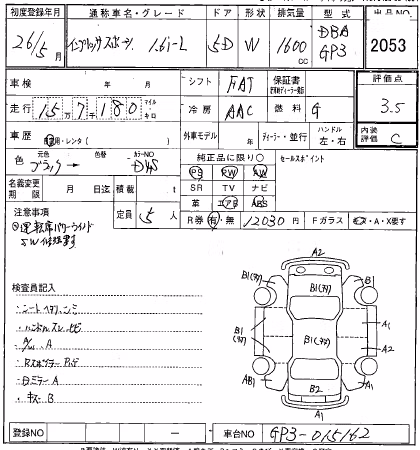 初度登録年月 通称車名・グレード ドア 形状 排気量 型式 出品NO
26/5月 インプレッサスポーツ 1.6i-L 5D W 1600cc DBA GP3 2053
車検 年 月 シフト FAT 保証書 評価点
走行 15万7180 マイル・キロ 冷房 AAC 燃料 G 3.5
車歴 自用・レンタ( ) 外車モデル 年 ディーラー・並行 ハンドル 左・右 内装評価 C
色 元色 ブラック → 色替 カラーNO D4S 純正品に限り○ セールスポイント
PS PW AW
名義変更期限 月 日迄 積載 t SR TV ナビ
革 エアB ABS
注意事項 定員 5人 R券 有・無 12030円 Fガラス A・X要す
①運転席パワーウインド
SW修理要す
検査員記入
シートヘタリ、シミ
ハンドルスレ
A/W A
ミラーA
キズB
A2
B1(アナ) B1(アナ) B1
B1(アナ) B1(アナ) A1
A2
AB1 B2 A1
A1
登録NO ー 車台NO GP3-015162